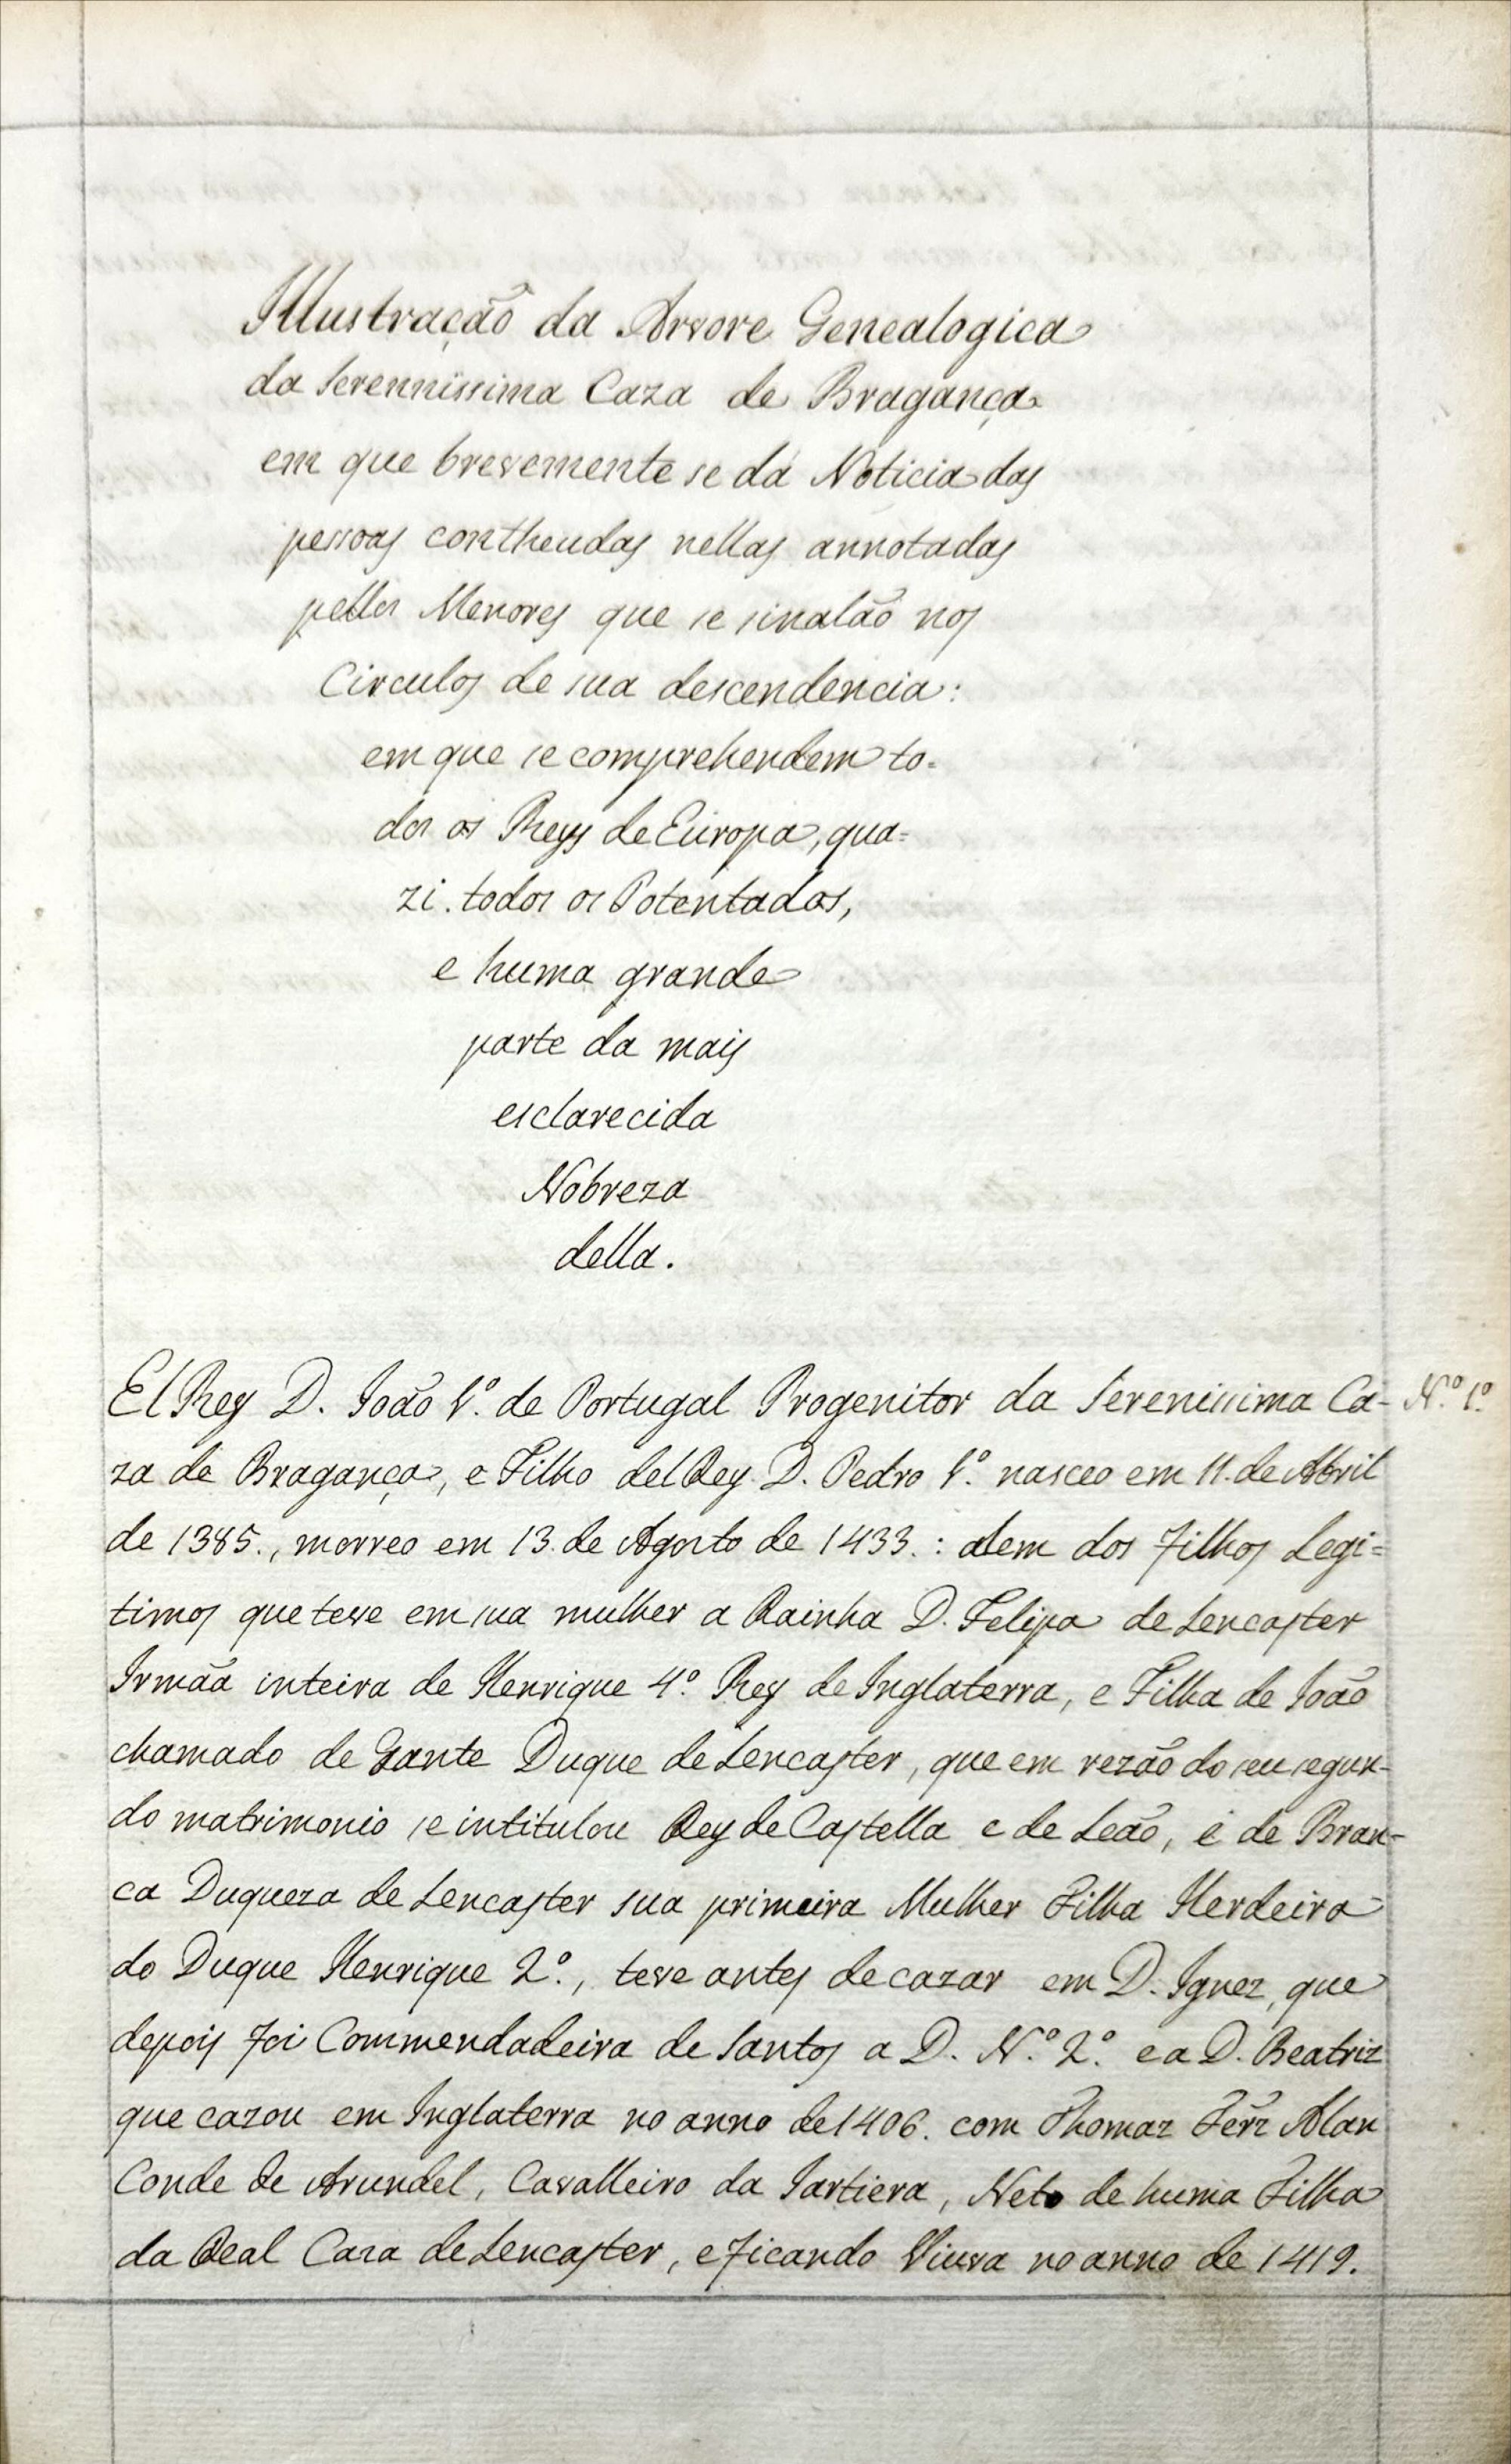 Illustração da Arvore Genealogica
da Serennissima Caza de Bragança
em que brevemente se dá Noticia das
pessoas contheudas nellas annotadas
pellos Menores que se sinalão nos
Circulos de sua descendencia:
em que se comprehendem to=
dos os Reys de Europa, qua=
zi. todos os Potentados,
e huma grande
parte da mais
esclarecida
Nobreza
della.
El Rey D. João 1º. de Portugal Progenitor da Serenissima Ca- N.º 1º.
za de Bragança, e Filho del Rey D. Pedro 1º. nasceo em 11. de Abril
de 1385., morreo em 13. de Agosto de 1433. : alem dos Filhos Legi=
timos que teve em sua mulher a Rainha D. Felipa de Lencaster
Irmãa inteira de Henrique 4º. Rey de Inglaterra, e Filha de João
chamado de Gante Duque de Lencaster, que em rezão do seu segun-
do matrimonio se intitulou Rey de Castella e de Leão, é de Bran-
ca Duqueza de Lencaster sua primeira Mulher Filha Herdeira
do Duque Henrique 2º., teve antes de cazar em D. Ignez, que
depois foi Commendadeira de Santos a D. N.º 2º. e a D. Beatriz
que cazou em Inglaterra no anno de 1406. com Thomaz Fêrz Alan
Conde de Arundel, Cavalleiro da Jartiera, Neto de huma Filha
da Real Caza de Lencaster, e ficando Viuva no anno de 1419.